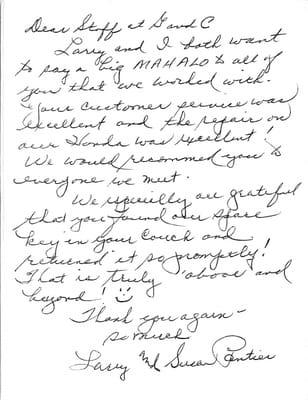 Dear Staff at G and C
Larry and I both want
to say a big MAHALO to all of
you that we worked with.
Your customer service was
excellent and the repair on
our Honda was excellent!
We would recommed you to
everyone we meet.
We especially are grateful
that you found our spare
key in your couch and
returned it so promptly!
That is truly "above and
beyond!
Thank you again -
so much
Larry and Susan